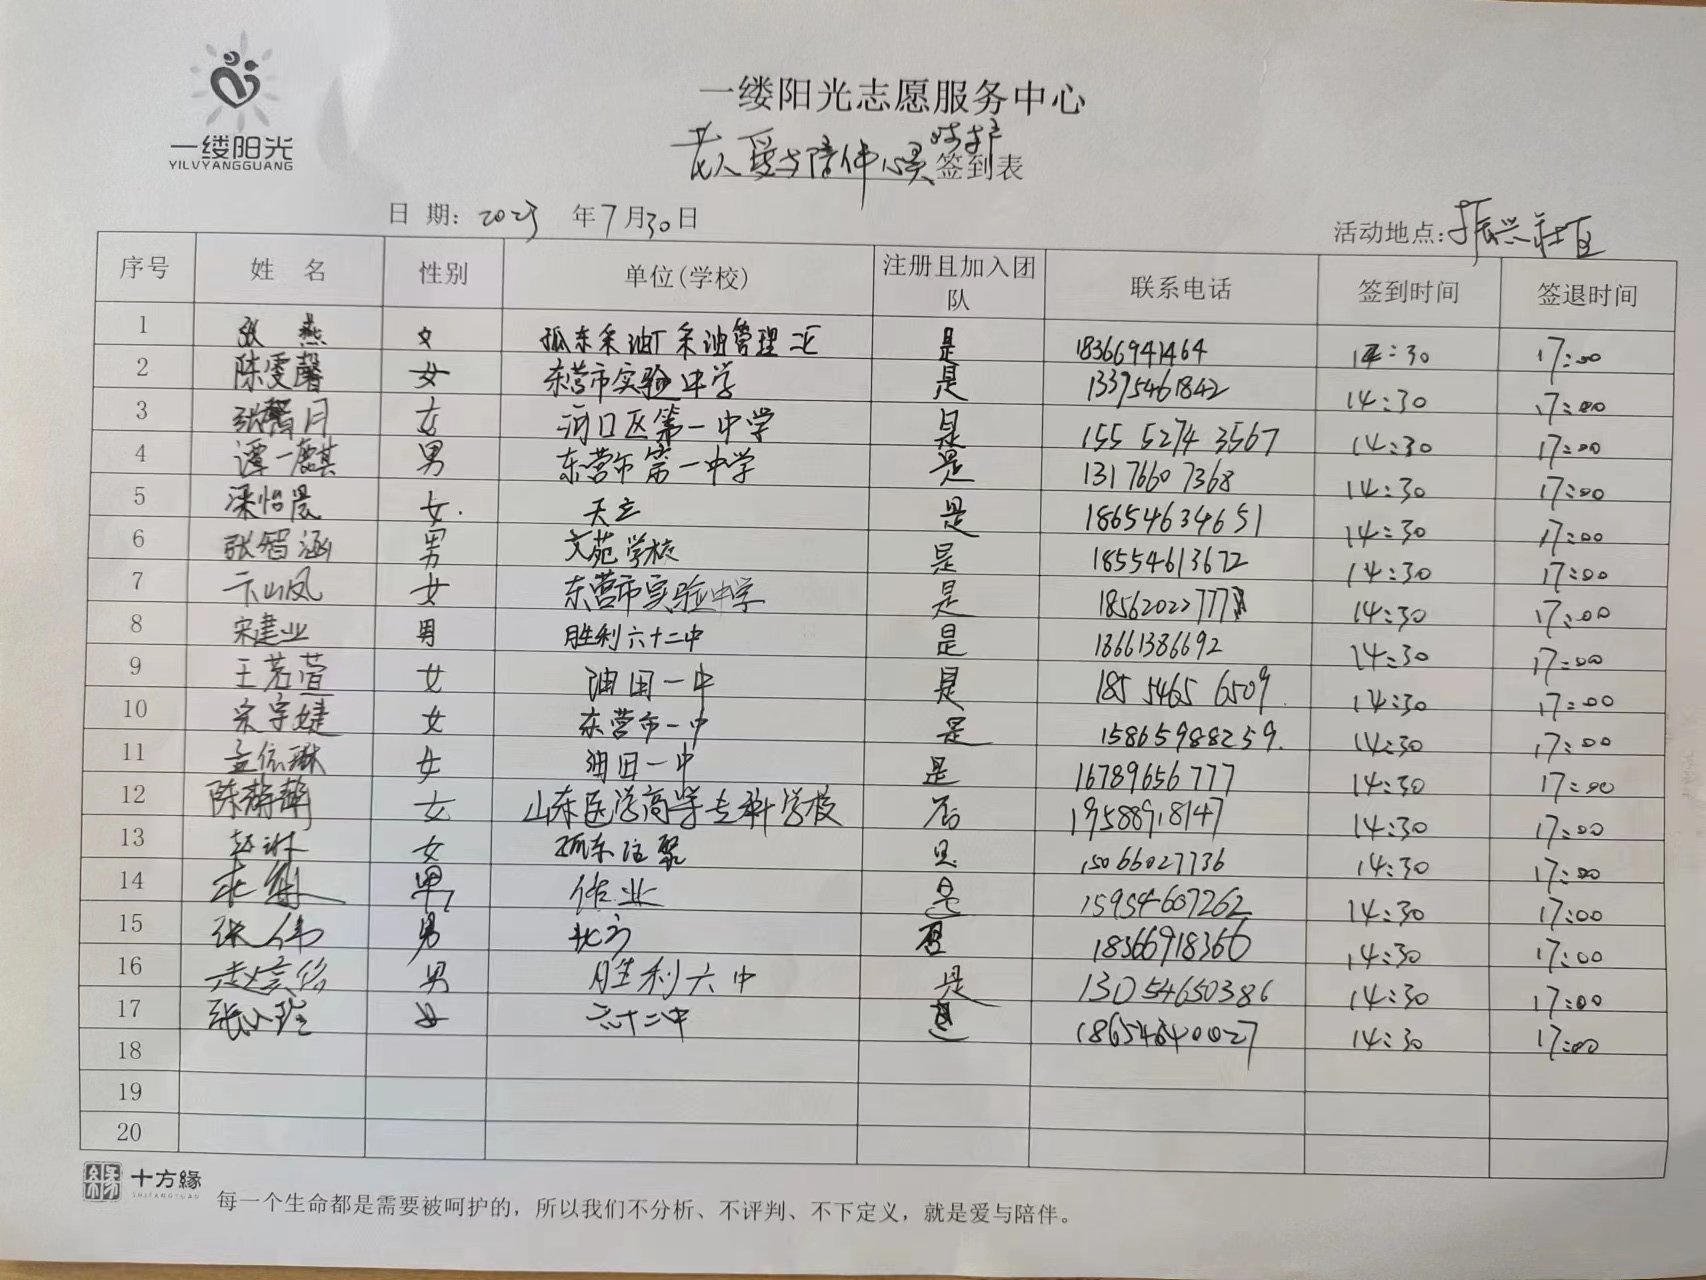 一缕阳光
YILVYANGGUANG
一缕阳光志愿服务中心
老人爱与陪伴心灵呵护签到表
日 期: 2023 年 7 月 30 日
活动地点: 振兴社区
序号 姓 名 性别 单位(学校) 注册且加入团队 联系电话 签到时间 签退时间
1 张燕 女 孤东采油厂采油管理二区 是 18366941464 14:30 17:00
2 陈雯馨 女 东营市实验中学 是 13395461842 14:30 17:00
3 张馨月 女 河口区第一中学 是 155 5274 3567 14:30 17:00
4 谭一麒 男 东营市第一中学 是 131 7660 7368 14:30 17:00
5 梁怡晨 女 天立 是 18654634651 14:30 17:00
6 张智涵 男 文苑学校 是 18554613672 14:30 17:00
7 卞山凤 女 东营市实验中学 是 14:30 17:00
8 宋建业 男 胜利六十二中 是 18661386692 14:30 17:00
9 王若萱 女 油田一中 是 185 5465 6509 14:30 17:00
10 宗宇婕 女 东营市一中 是 15865988259 14:30 17:00
11 孟依琳 女 油田一中 是 16789656777 14:30 17:00
12 陈静静 女 山东医学高等专科学校 否 19588918147 14:30 17:00
13 赵琳 女 孤东注聚 是 15066027736 14:30 17:00
14 男 作业 是 15954607262 14:30 17:00
15 张伟 男 北方 否 18366918366 14:30 17:00
16 男 胜利六中 是 13054650386 14:30 17:00
17 张小玲 女 六十二中 是 14:30 17:00
18
19
20
十方緣
SHIFANGYUAN
每一个生命都是需要被呵护的，所以我们不分析、不评判、不下定义，就是爱与陪伴。